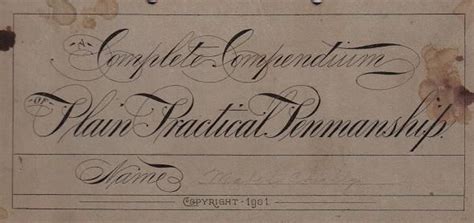 A
Complete Compendium
OF
Plain Practical Penmanship.
Name
COPYRIGHT - 1901.